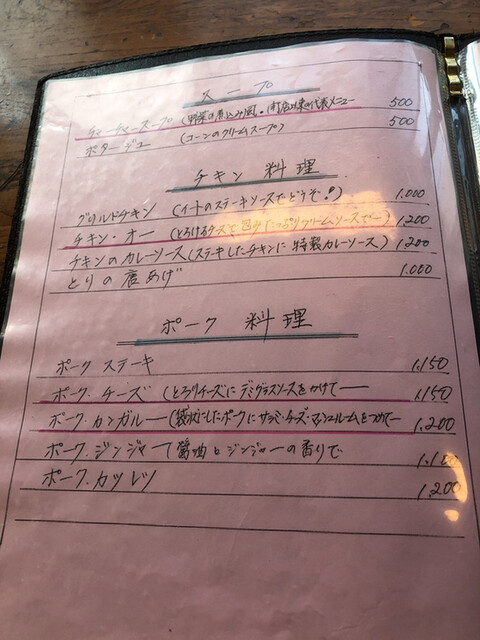 スープ
チャーチャースープ (野菜の煮込み風・開店以来の代表メニュー 500
ポタージュー (コーンのクリームスープ) 500
チキン 料理
グリルドチキン (イートのステーキソースでどうぞ!) 1,000
チキン・オー (とろけるチーズで包み たっぷりクリームソースで― 1,200
チキンのカレーソース (ステキしたチキンに特製カレーソース) 1,200
とりの唐あげ 1,000
ポーク 料理
ポーク ステーキ 1,150
ポーク・チーズ (とろりチーズにデミグラスソースをかけて― 1,150
ポーク・カンガルー (袋状にしたポークにサラミ・チーズ・マッシュルームをつめて― 1,200
ポーク・ジンジャー 醤油とジンジャーの香りで 1,100
ポーク・カツレツ 1,200